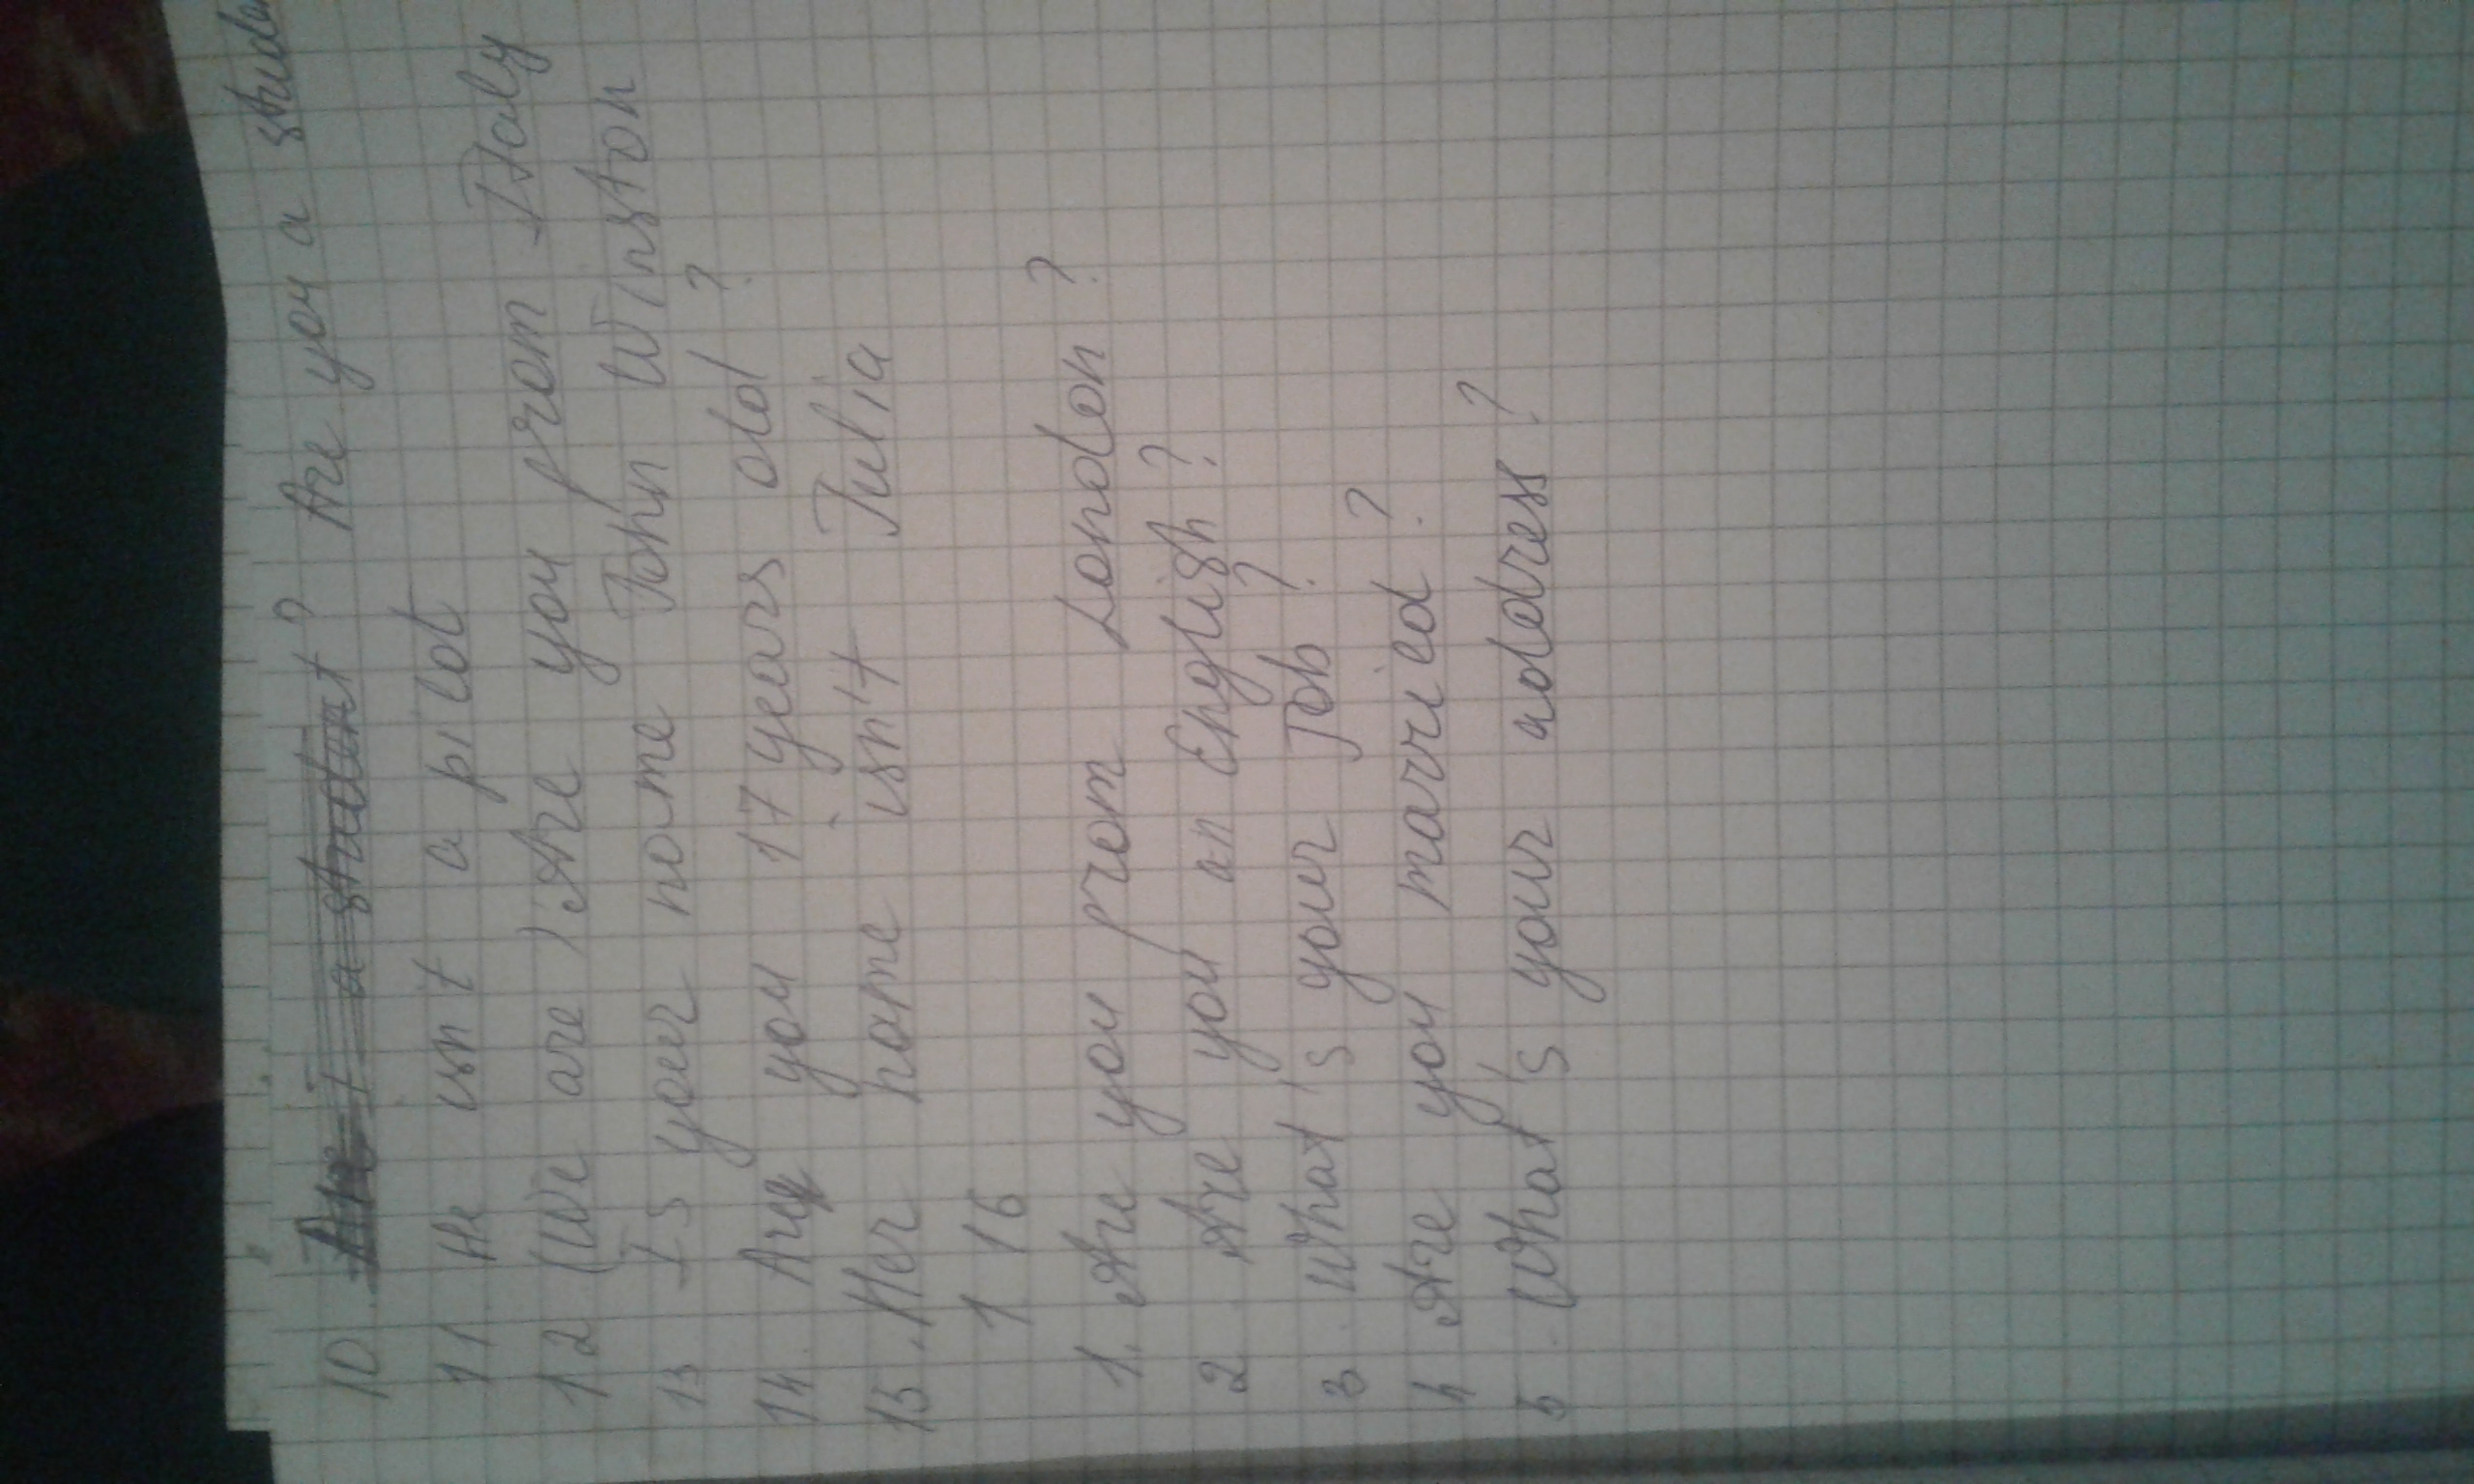 10. Are I a student? Are you a studen
11 He isn't a pilot
12 (We are) Are you from Italy
13 Is your name John Winston
14. Are you 17 years old?
15. Her name isn't Julia
1 16
1. Are you from London?
2. Are you an English?
3. What's your Job?
4 Are you married?
5. What's your address?